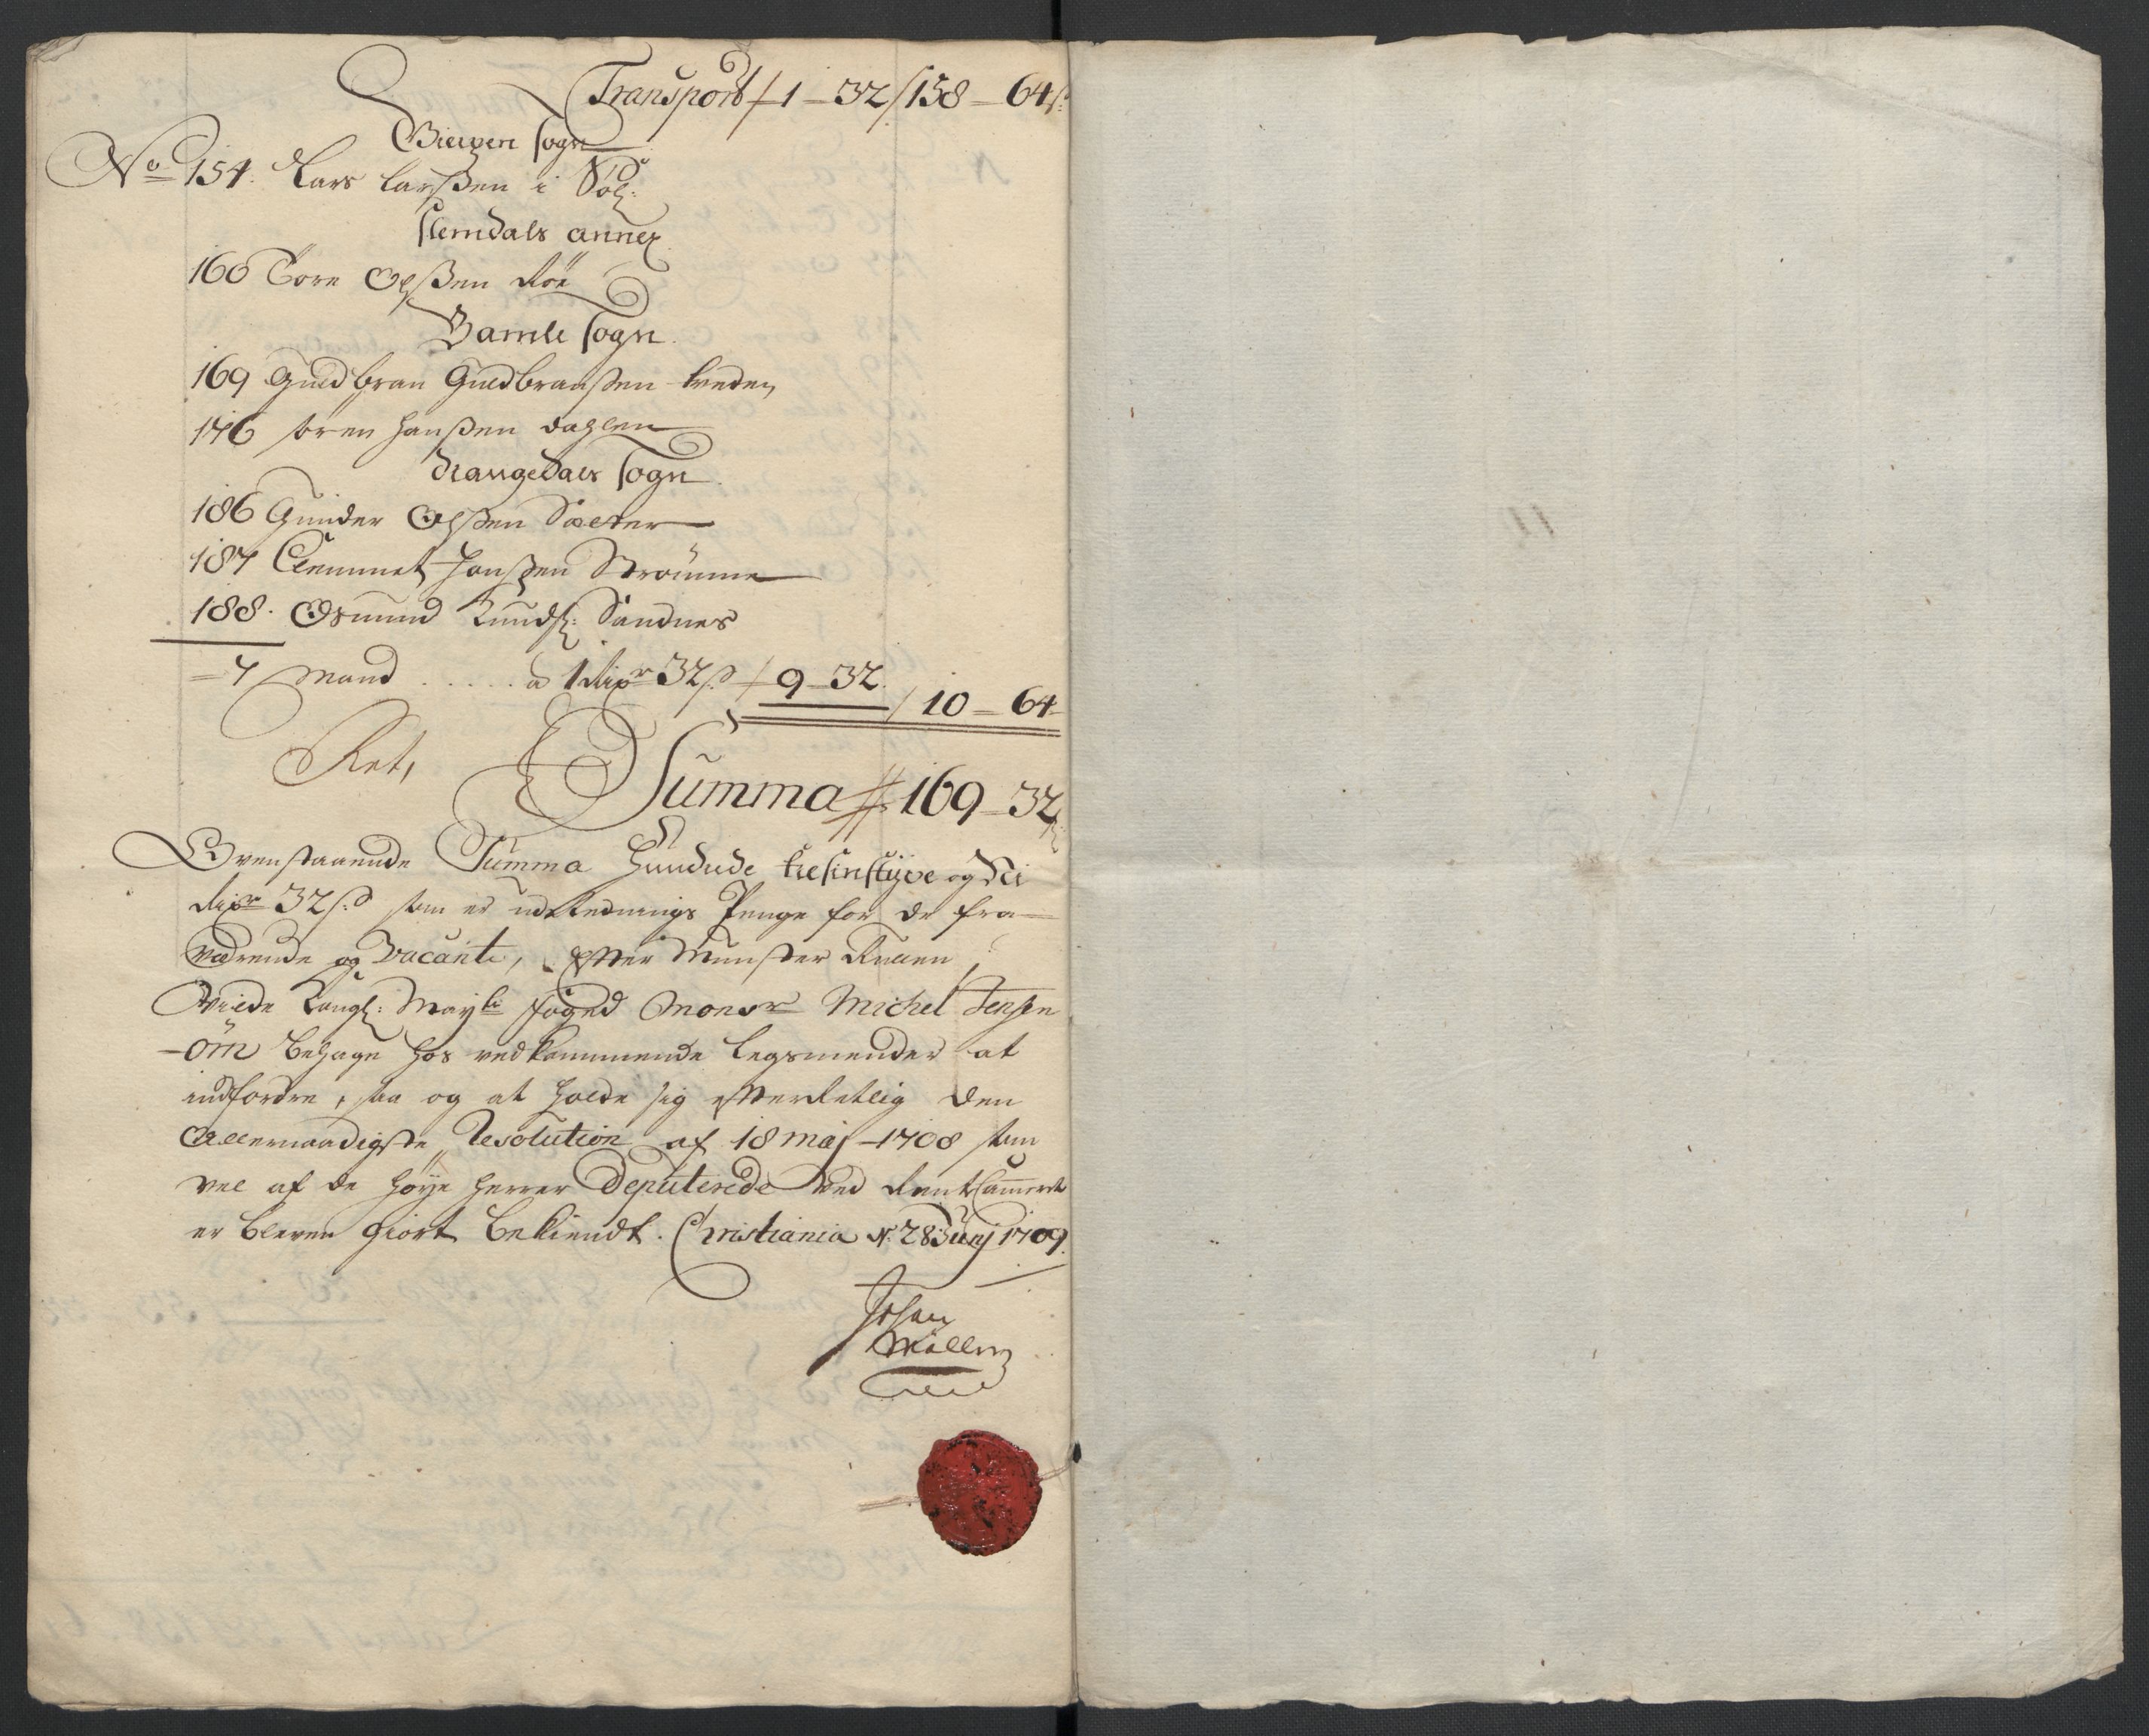 Transport / 1 – 32 / 158 – 64 s:
Gierpen sogn
No 154. Lars Larßen i Døl:
slemdals annex
160 Tore Olßen Röe
Bamle sogn.
169 Guldbran Guldbranßen tveden
176 sören Hanßen dahlen
drangedals sogn.
186 Gunder Olßen Sæter
187 Clemmet Hanßen Strömme
188. Osmund Knuds: Sandnes
= 7 Mand . . . . . a 1 Rixdr 32 s / 9 – 32.
/ 10 – 64
Ret,
Summa // 169 – 32
Ovenstaaende Summa Hundrede tresinstyve og Ni
Rixdr 32 s: som er udrednings Penge for de fra-
værende og Vacante, efter Munster Rullen
Vilde Kongl: Mayts foged Monsr Michel Jensen
–örn behage hos vedkommende Legsmender at
indfordre, saa og at holde sig efterretlig den
Allernaadigste Resolution af 18 maj – 1708 som
vel af de höye Herrer Deputerede ved RentCammeret
er bleven giort bekiendt. Christiania d: 28 Junj 1709.
Johan
Möller